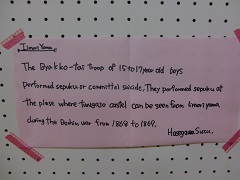 Iimori Yama
The Byakko-tai Troop of 15 to 17 year old boys
performed sepuku or committal suicide. They performed sepuku at
the place where tsurugajo castel can be seen from iimori yama,
during the Boshin war from 1868 to 1869.
Hasegawa Suzu.